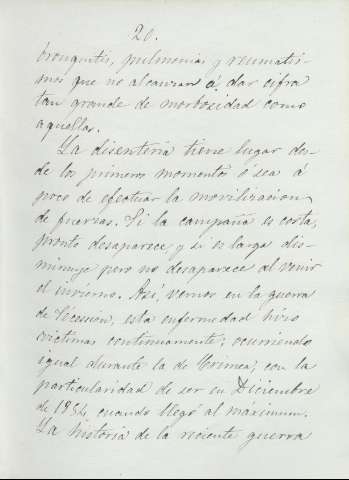 20.
bronquitis, pulmonias y reumatis-
mos que no alcanzan á dar cifra
tan grande de morbosidad como
aquellas.
La disenteria tiene lugar des-
de los primeros momentos ó sea á
poco de efectuar la movilizacion
de fuerzas. Si la campaña es corta,
pronto desaparece y si es larga dis-
minuye pero no desaparece al venir
el invierno. Así, vemos en la guerra
de Secession, esta enfermedad hizo
victimas continuamente; ocurriendo
igual durante la de Crimea, con la
particularidad de ser en Diciembre
de 1854 cuando llegó al máximum.
La historia de la reciente guerra